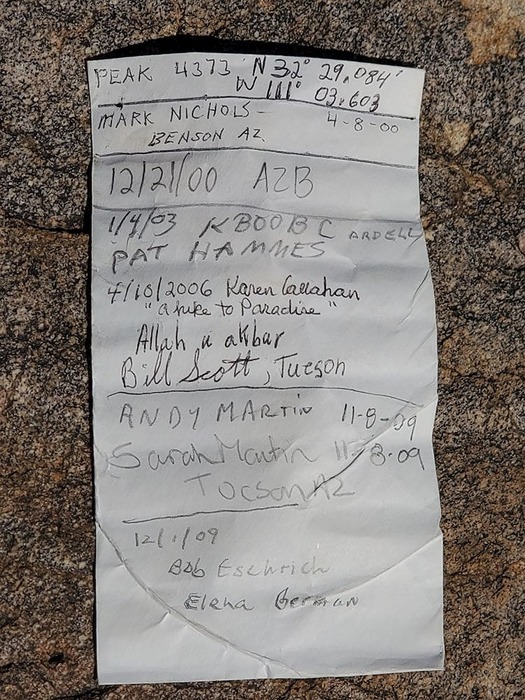 PEAK 4373 N 32° 29.084'
W 111° 03.603
MARK NICHOLS 4-8-00
BENSON AZ
12/21/00 AZB
1/4/03 KBOOBC ARDELL
PAT HAMMES
4/10/2006 Karen Callahan
"a hike to Paradise"
Allah u akbar
Bill Scott, Tucson
ANDY MARTIN 11-8-09
Sarah Martin 11-8-09
Tucson AZ
12/1/09
Bob Eschrich
Elena German